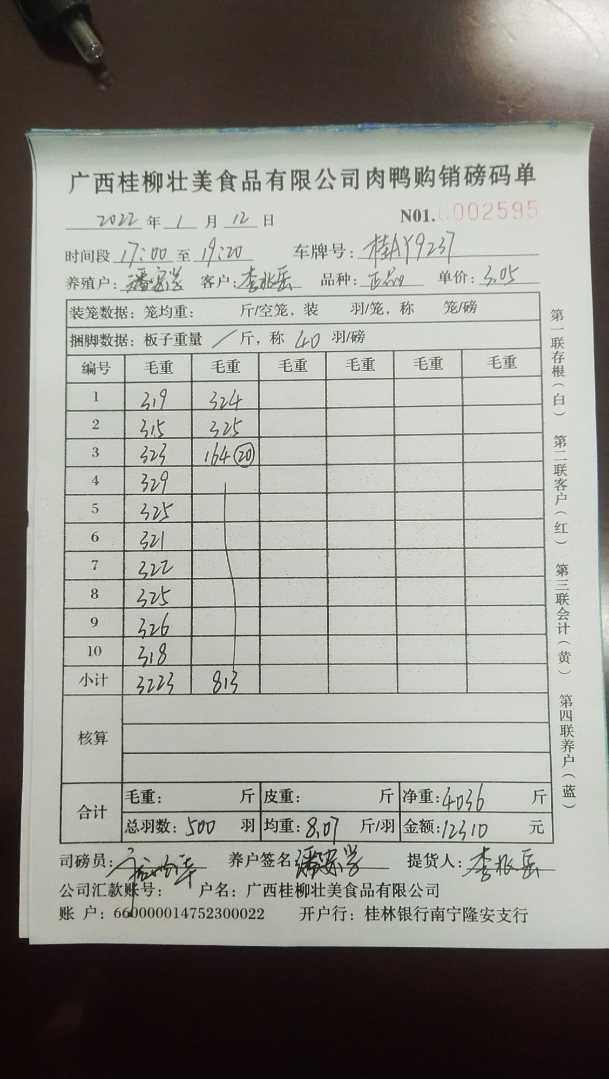 广西桂柳壮美食品有限公司肉鸭购销磅码单
2022 年 1 月 12 日 N01. 002595
时间段 17:00 至 19:20 车牌号: 桂AY9237
养殖户: 客户: 李兆岳 品种: 正品 单价: 3.05
装笼数据: 笼均重: 斤/空笼, 装 羽/笼, 称 笼/磅
捆脚数据: 板子重量 / 斤, 称 40 羽/磅
编号 毛重 毛重 毛重 毛重 毛重 毛重
1 319 324
2 315 325
3 323 164 20
4 329
5 325
6 321
7 322
8 325
9 326
10 318
小计 3223 813
核算
合计 毛重: 斤 皮重: 斤 净重: 4036 斤
总羽数: 500 羽 均重: 8.07 斤/羽 金额: 12310 元
司磅员: 养户签名: 提货人: 李兆岳
公司汇款账号: 户名: 广西桂柳壮美食品有限公司
账 户: 660000014752300022 开户行: 桂林银行南宁隆安支行
第一联存根(白) 第二联客户(红) 第三联会计(黄) 第四联养户(蓝)